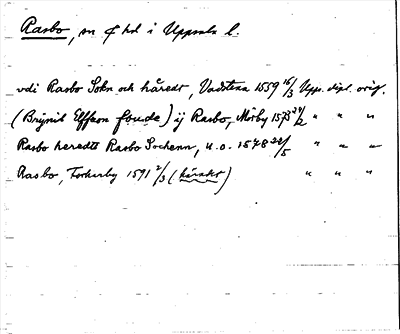 Rasbo, sn o hd i Uppsala l.
vdi Rasbo Sokn och häredt, Vadstena 1559 16/3 Upps. dipl. orig.
(Brijnit Elffson foude) ij Rasbo, Mörby 1573 24/2 " " "
Rasbo heredtt Rasbo Sochenn, u.o. 1578 22/5 " " "
Rasbo, Torkarby 1591 2/3 (häradet) " " "